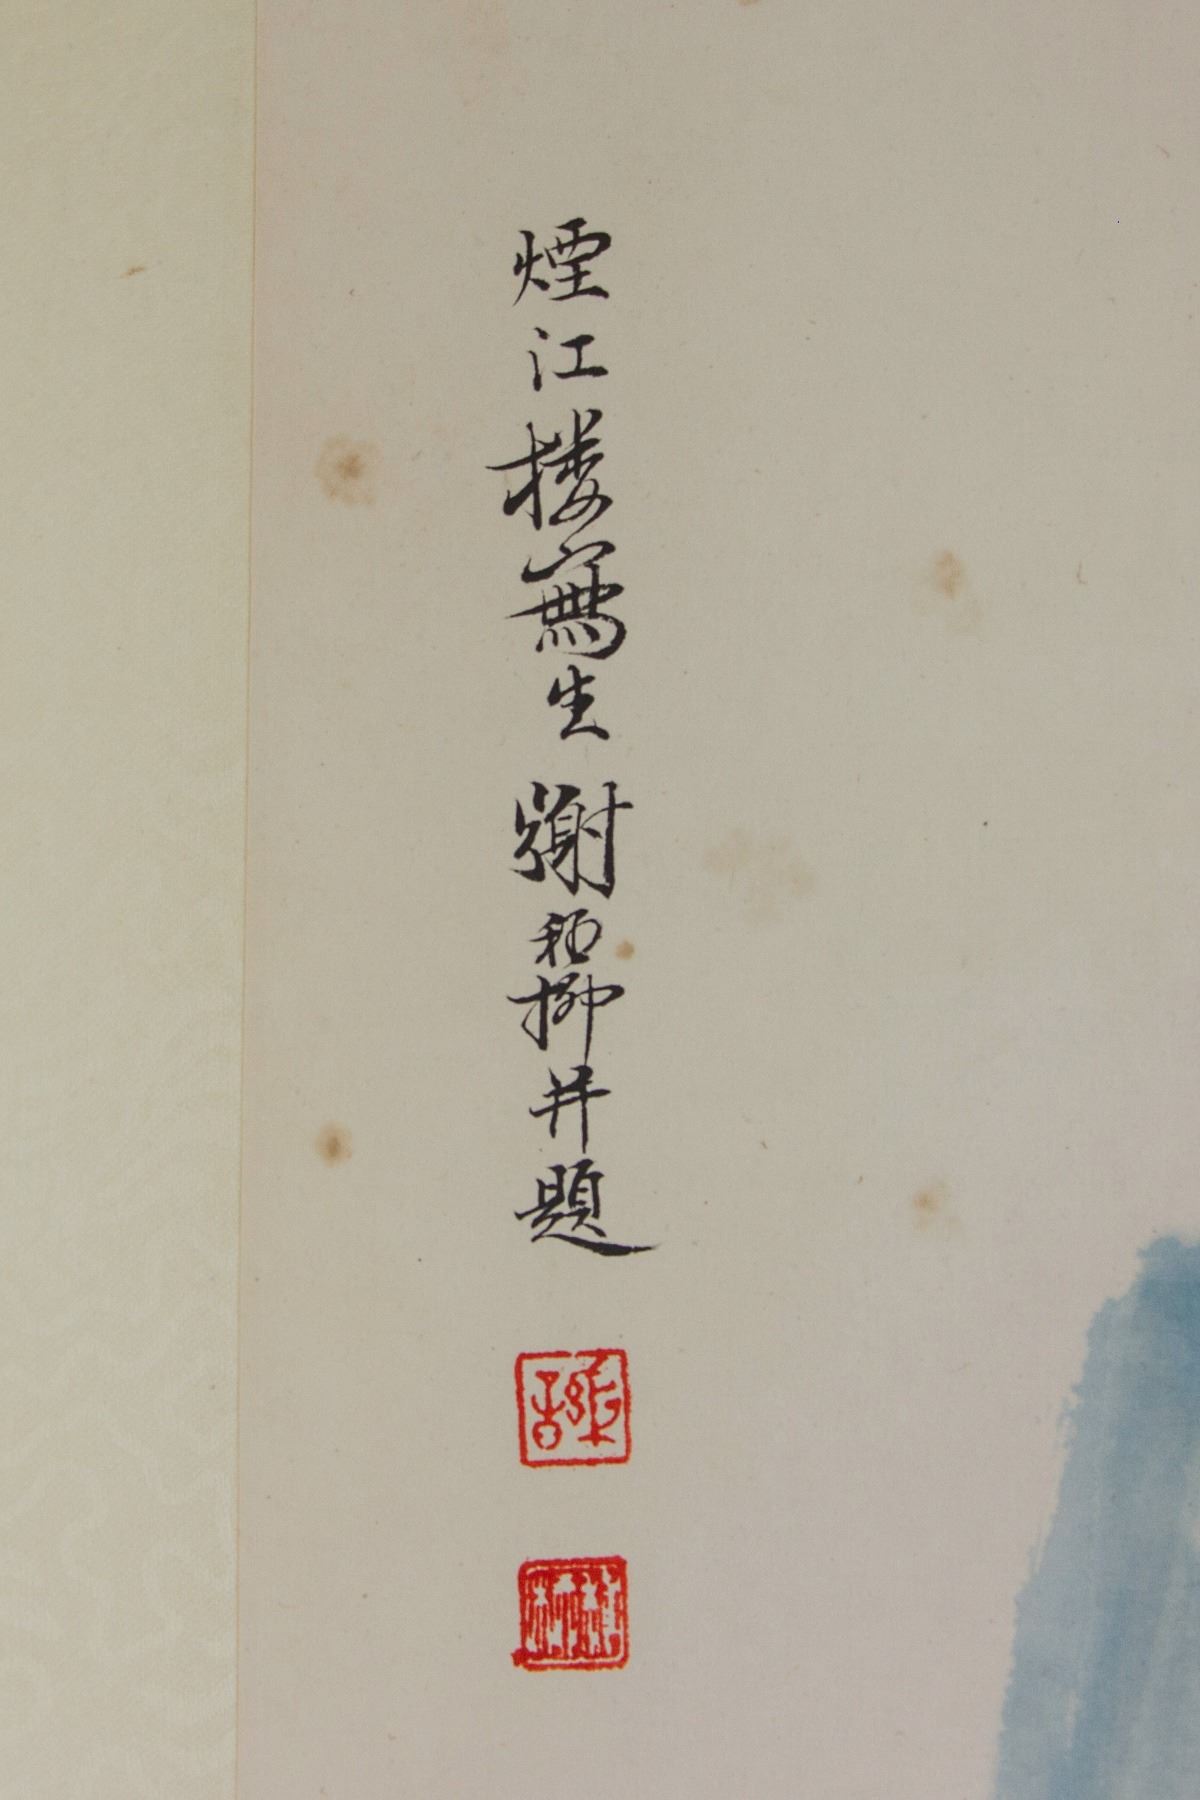 煙江楼寫生謝稚柳并題